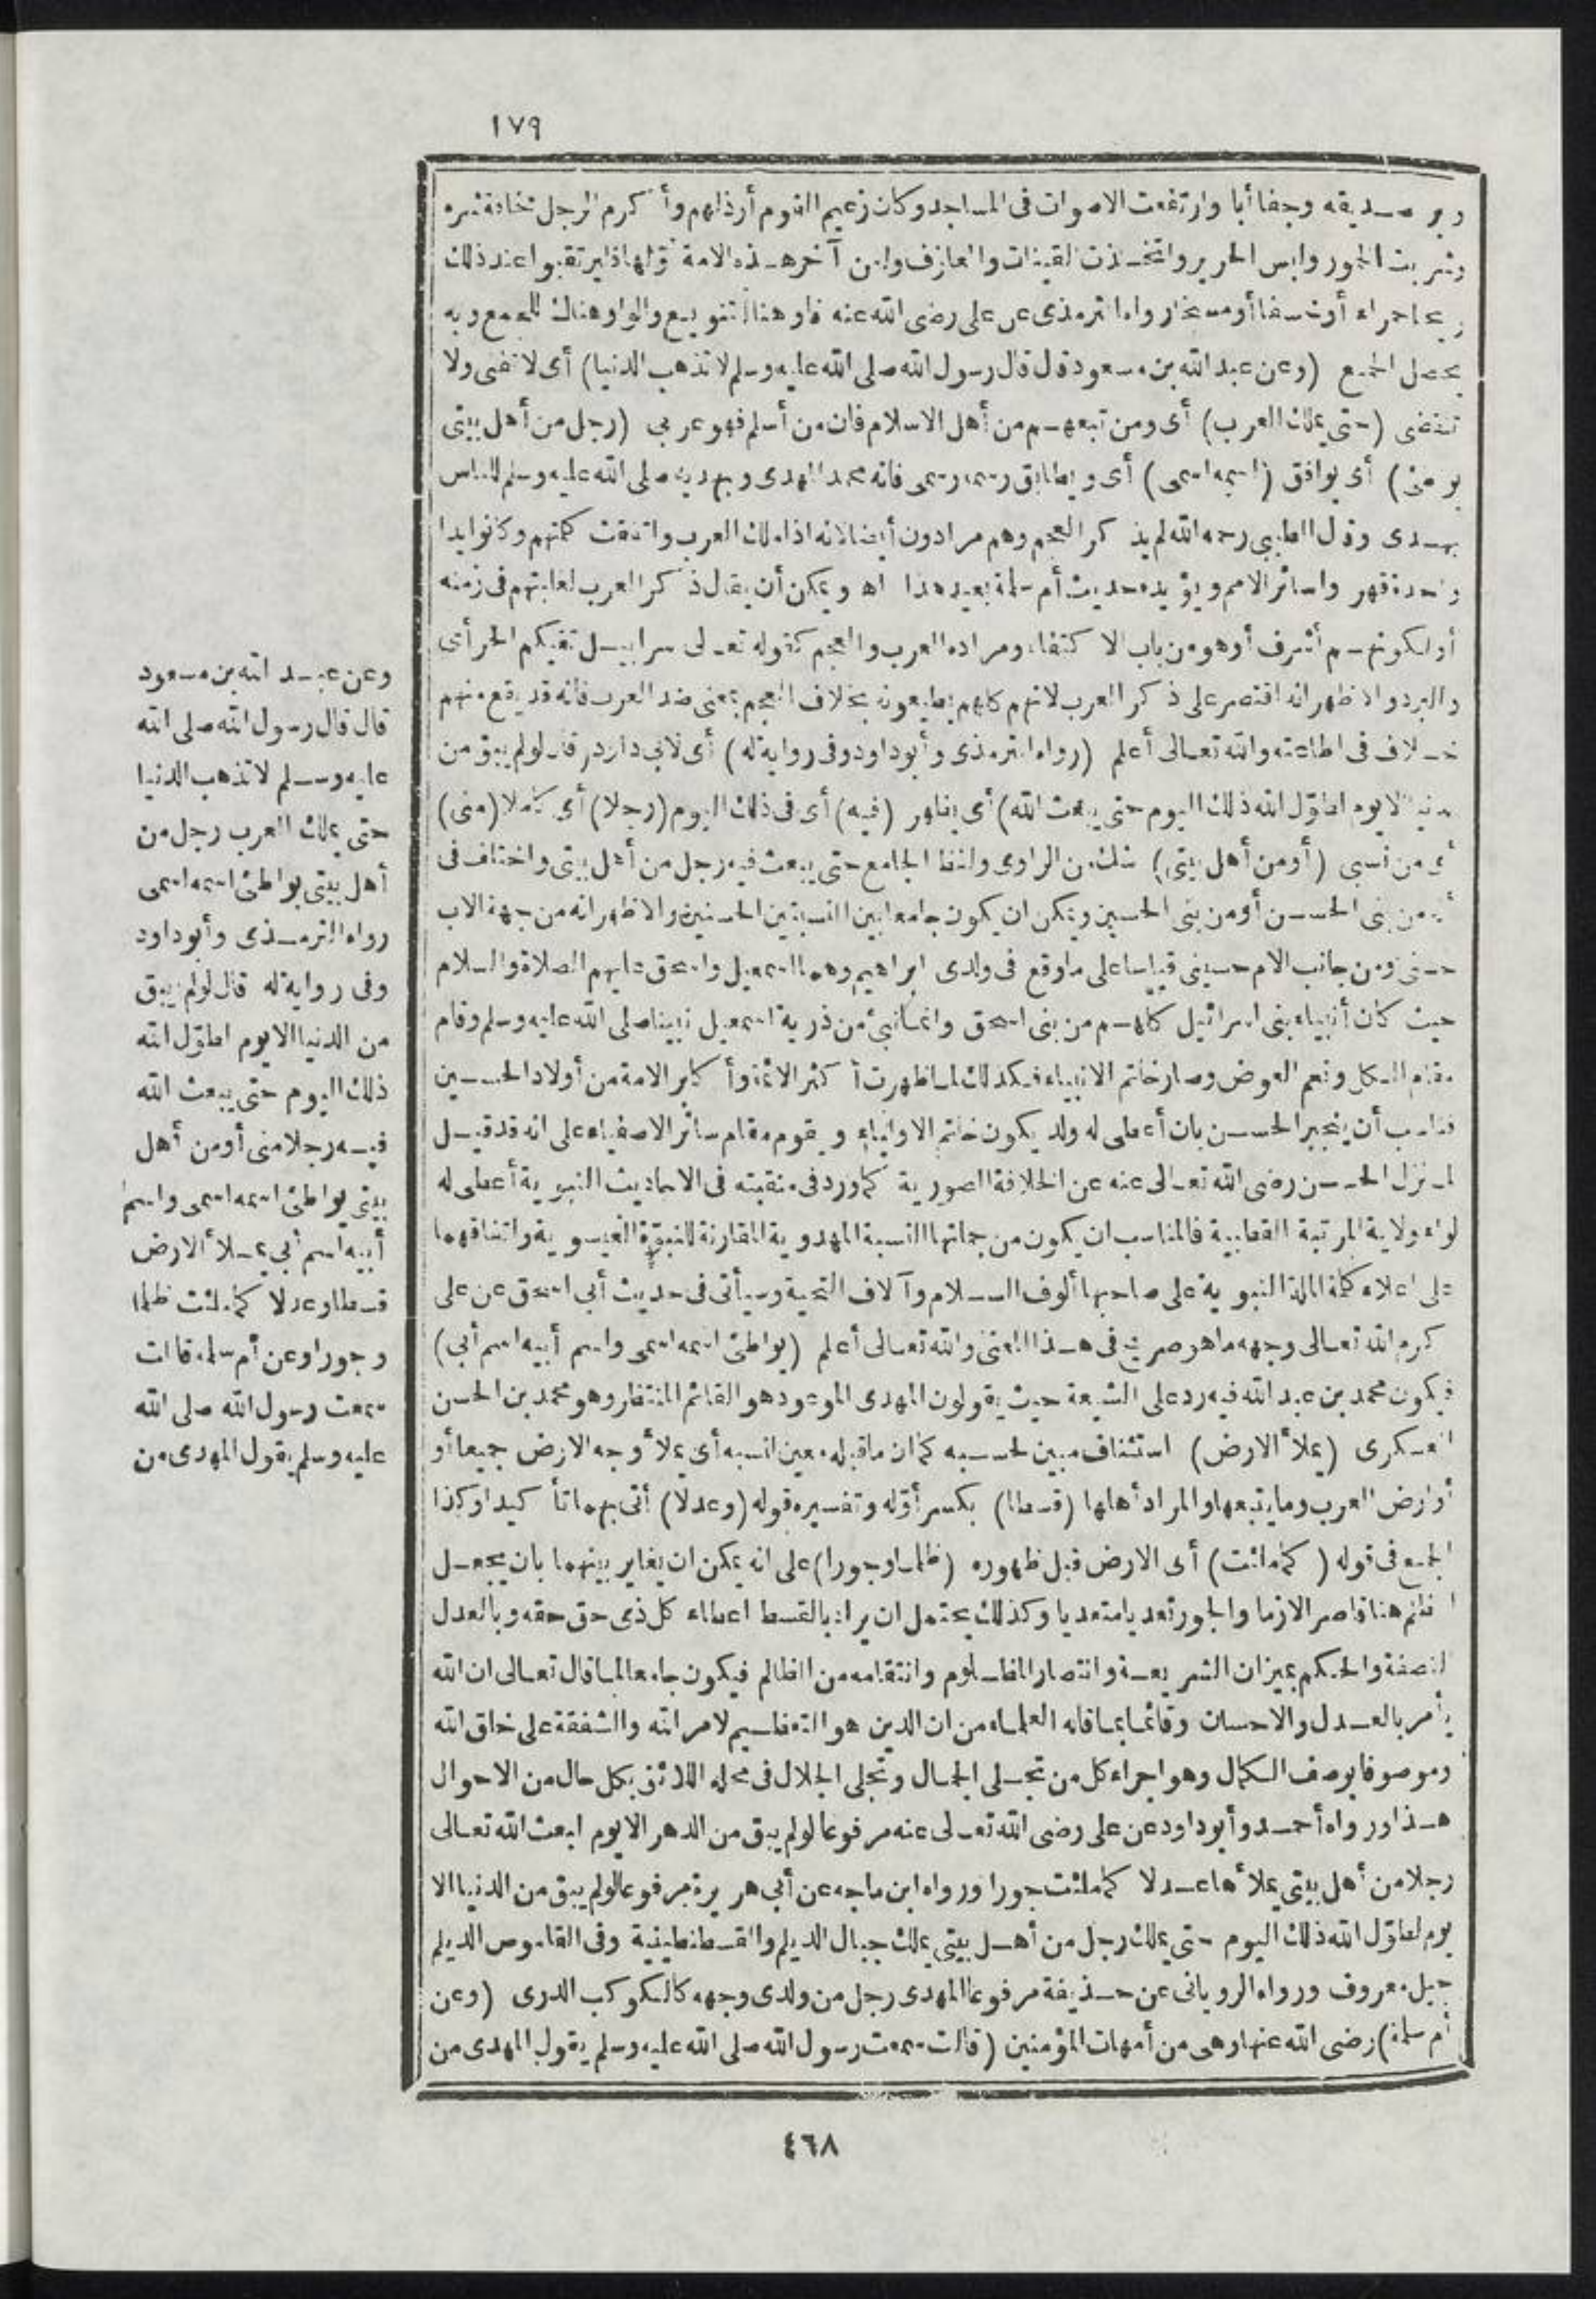 ١٧٩
وبر صديقه وجفا أبا وارتفعت الاصوات فى المساجد وكان زعيم القوم أرذلهم وأكرم الرجل مخافة شره
وشربت الخمور ولبس الحرير واتخذت القينات والمعازف ولعن آخر هذه الامة أولها فليرتقبوا عند ذلك
ريحا حمراء أو خسفا أو مسخا رواه الترمذى عن على رضى الله عنه فأو هنا للتنويع والواو هناك للجمع وبه
يحصل الجمع (وعن عبد الله بن مسعود قال قال رسول الله صلى الله عليه وسلم لا تذهب الدنيا) أى لا تفنى ولا
تنقضى (حتى يملك العرب) أى ومن تبعهم من أهل الاسلام فان من أسلم فهو عربي (رجل من أهل بيتى
يواطئ) أى يوافق (اسمه اسمى) أى ويطابق رسمه رسمى فانه محمد المهدى وبهديه صلى الله عليه وسلم للناس
يهدى وقال الطيبي رحمه الله لم يذكر العجم وهم مرادون أيضا لانه اذا ملك العرب واتفقت كلمتهم وكانوا يدا
واحدة قهروا سائر الامم ويؤيده حديث أم سلمة بعيد هذا اه ويمكن أن يقال ذكر العرب لغلبتهم فى زمنه
أو لكونهم أشرف أو هو من باب الاكتفاء ومراده العرب والعجم كقوله تعالى سرابيل تقيكم الحر أى
والبرد والاظهر انه اقتصر على ذكر العرب لانهم كلهم يطيعونه بخلاف العجم بمعنى ضد العرب فانه قد يقع منهم
خلاف فى اطاعته والله تعالى أعلم (رواه الترمذى وأبو داود وفى رواية له) أى لابي داود قال لو لم يبق من
الدنيا الا يوم لطوّل الله ذلك اليوم حتى يبعث الله) أى يظهر (فيه) أى فى ذلك اليوم (رجلا) أى كاملا (منى)
أى من نسبى (أو من أهل بيتى) شك من الراوى ولفظ الجامع حتى يبعث فيه رجل من أهل بيتى واختلف فى
أنه من بنى الحسن أو من بنى الحسين ويمكن ان يكون جامعا بين النسبتين الحسنيين والاظهر انه من جهة الاب
حسنى ومن جانب الام حسينى قياسا على ما وقع فى ولدى ابراهيم وهما اسمعيل واسحق عليهم الصلاة والسلام
حيث كان أنبياء بنى اسرائيل كلهم من بنى اسحق وانما نبئ من ذرية اسمعيل نبينا صلى الله عليه وسلم وقام
مقام الكل ونعم العوض وصار خاتم الانبياء فكذلك لما ظهرت أكثر الائمة وأكابر الامة من أولاد الحسين
فناسب أن ينجبر الحسن بان أعطى له ولد يكون خاتم الاولياء ويقوم مقام سائر الاصفياء على انه قد قيل
لما نزل الحسن رضى الله تعالى عنه عن الخلافة الصورية كما ورد فى منقبته فى الاحاديث النبوية أعطى له
لواء ولاية المرتبة القطبية فالمناسب ان يكون من جملتها النسبة المهدوية المقارنة للنبوّة العيسوية واتفاقهما
على اعلاء كلمة الملة النبوية على صاحبها ألوف السلام وآلاف التحية وسيأتى فى حديث أبى اسحق عن على
كرم الله تعالى وجهه ما هو صريح فى هذا المعنى والله تعالى أعلم (يواطئ اسمه اسمى واسم أبيه اسم أبى)
فيكون محمد بن عبد الله فيه رد على الشيعة حيث يقولون المهدى الموعود هو القائم المنتظر وهو محمد بن الحسن
العسكرى (يملأ الارض) استئناف مبين لحسبه كما ان ما قبله معين لنسبه أى يملأ وجه الارض جميعا أو
أو ارض العرب وما يتبعها والمراد أهلها (قسطا) بكسر أوّله وتفسيره قوله (وعدلا) أتى بهما تأكيدا وكذا
الجمع فى قوله (كما ملئت) أى الارض قبل ظهوره (ظلما وجورا) على انه يمكن ان يغاير بينهما بان يجعل
الظلم هنا قاصرا لازما والجور تعديا متعديا وكذلك يحتمل ان يراد بالقسط اعطاء كل ذى حق حقه وبالعدل
النصفة والحكم بميزان الشريعة وانتصار المظلوم وانتقامه من الظالم فيكون جامعا لما قال تعالى ان الله
يأمر بالعدل والاحسان وقائما بما قاله العلماء من ان الدين هو التعظيم لامر الله والشفقة على خلق الله
وموصوفا بوصف الكمال وهو اجراء كل من تجلى الجمال وتجلى الجلال فى محله اللائق بكل حال من الاحوال
هذا ورواه أحمد وأبو داود عن على رضى الله تعالى عنه مرفوعا لو لم يبق من الدهر الا يوم لبعث الله تعالى
رجلا من أهل بيتى يملأها عدلا كما ملئت جورا ورواه ابن ماجه عن أبى هريرة مرفوعا لو لم يبق من الدنيا الا
يوم لطوّل الله ذلك اليوم حتى يملك رجل من أهل بيتى يملك جبال الديلم والقسطنطينية وفى القاموس الديلم
جبل معروف ورواه الرويانى عن حذيفة مرفوعا المهدى رجل من ولدى وجهه كالكوكب الدرى (وعن
أم سلمة) رضى الله عنها وهى من أمهات المؤمنين (قالت سمعت رسول الله صلى الله عليه وسلم يقول المهدى من
وعن عبد الله بن مسعود
قال قال رسول الله صلى الله
عليه وسلم لا تذهب الدنيا
حتى يملك العرب رجل من
أهل بيتى يواطئ اسمه اسمى
رواه الترمذى وأبو داود
وفى رواية له قال لو لم يبق
من الدنيا الا يوم لطوّل الله
ذلك اليوم حتى يبعث الله
فيه رجلا منى أو من أهل
بيتى يواطئ اسمه اسمى واسم
أبيه اسم أبي يملأ الارض
قسطا وعدلا كما ملئت ظلما
وجورا وعن أم سلمة قالت
سمعت رسول الله صلى الله
عليه وسلم يقول المهدى من
٤٦٨